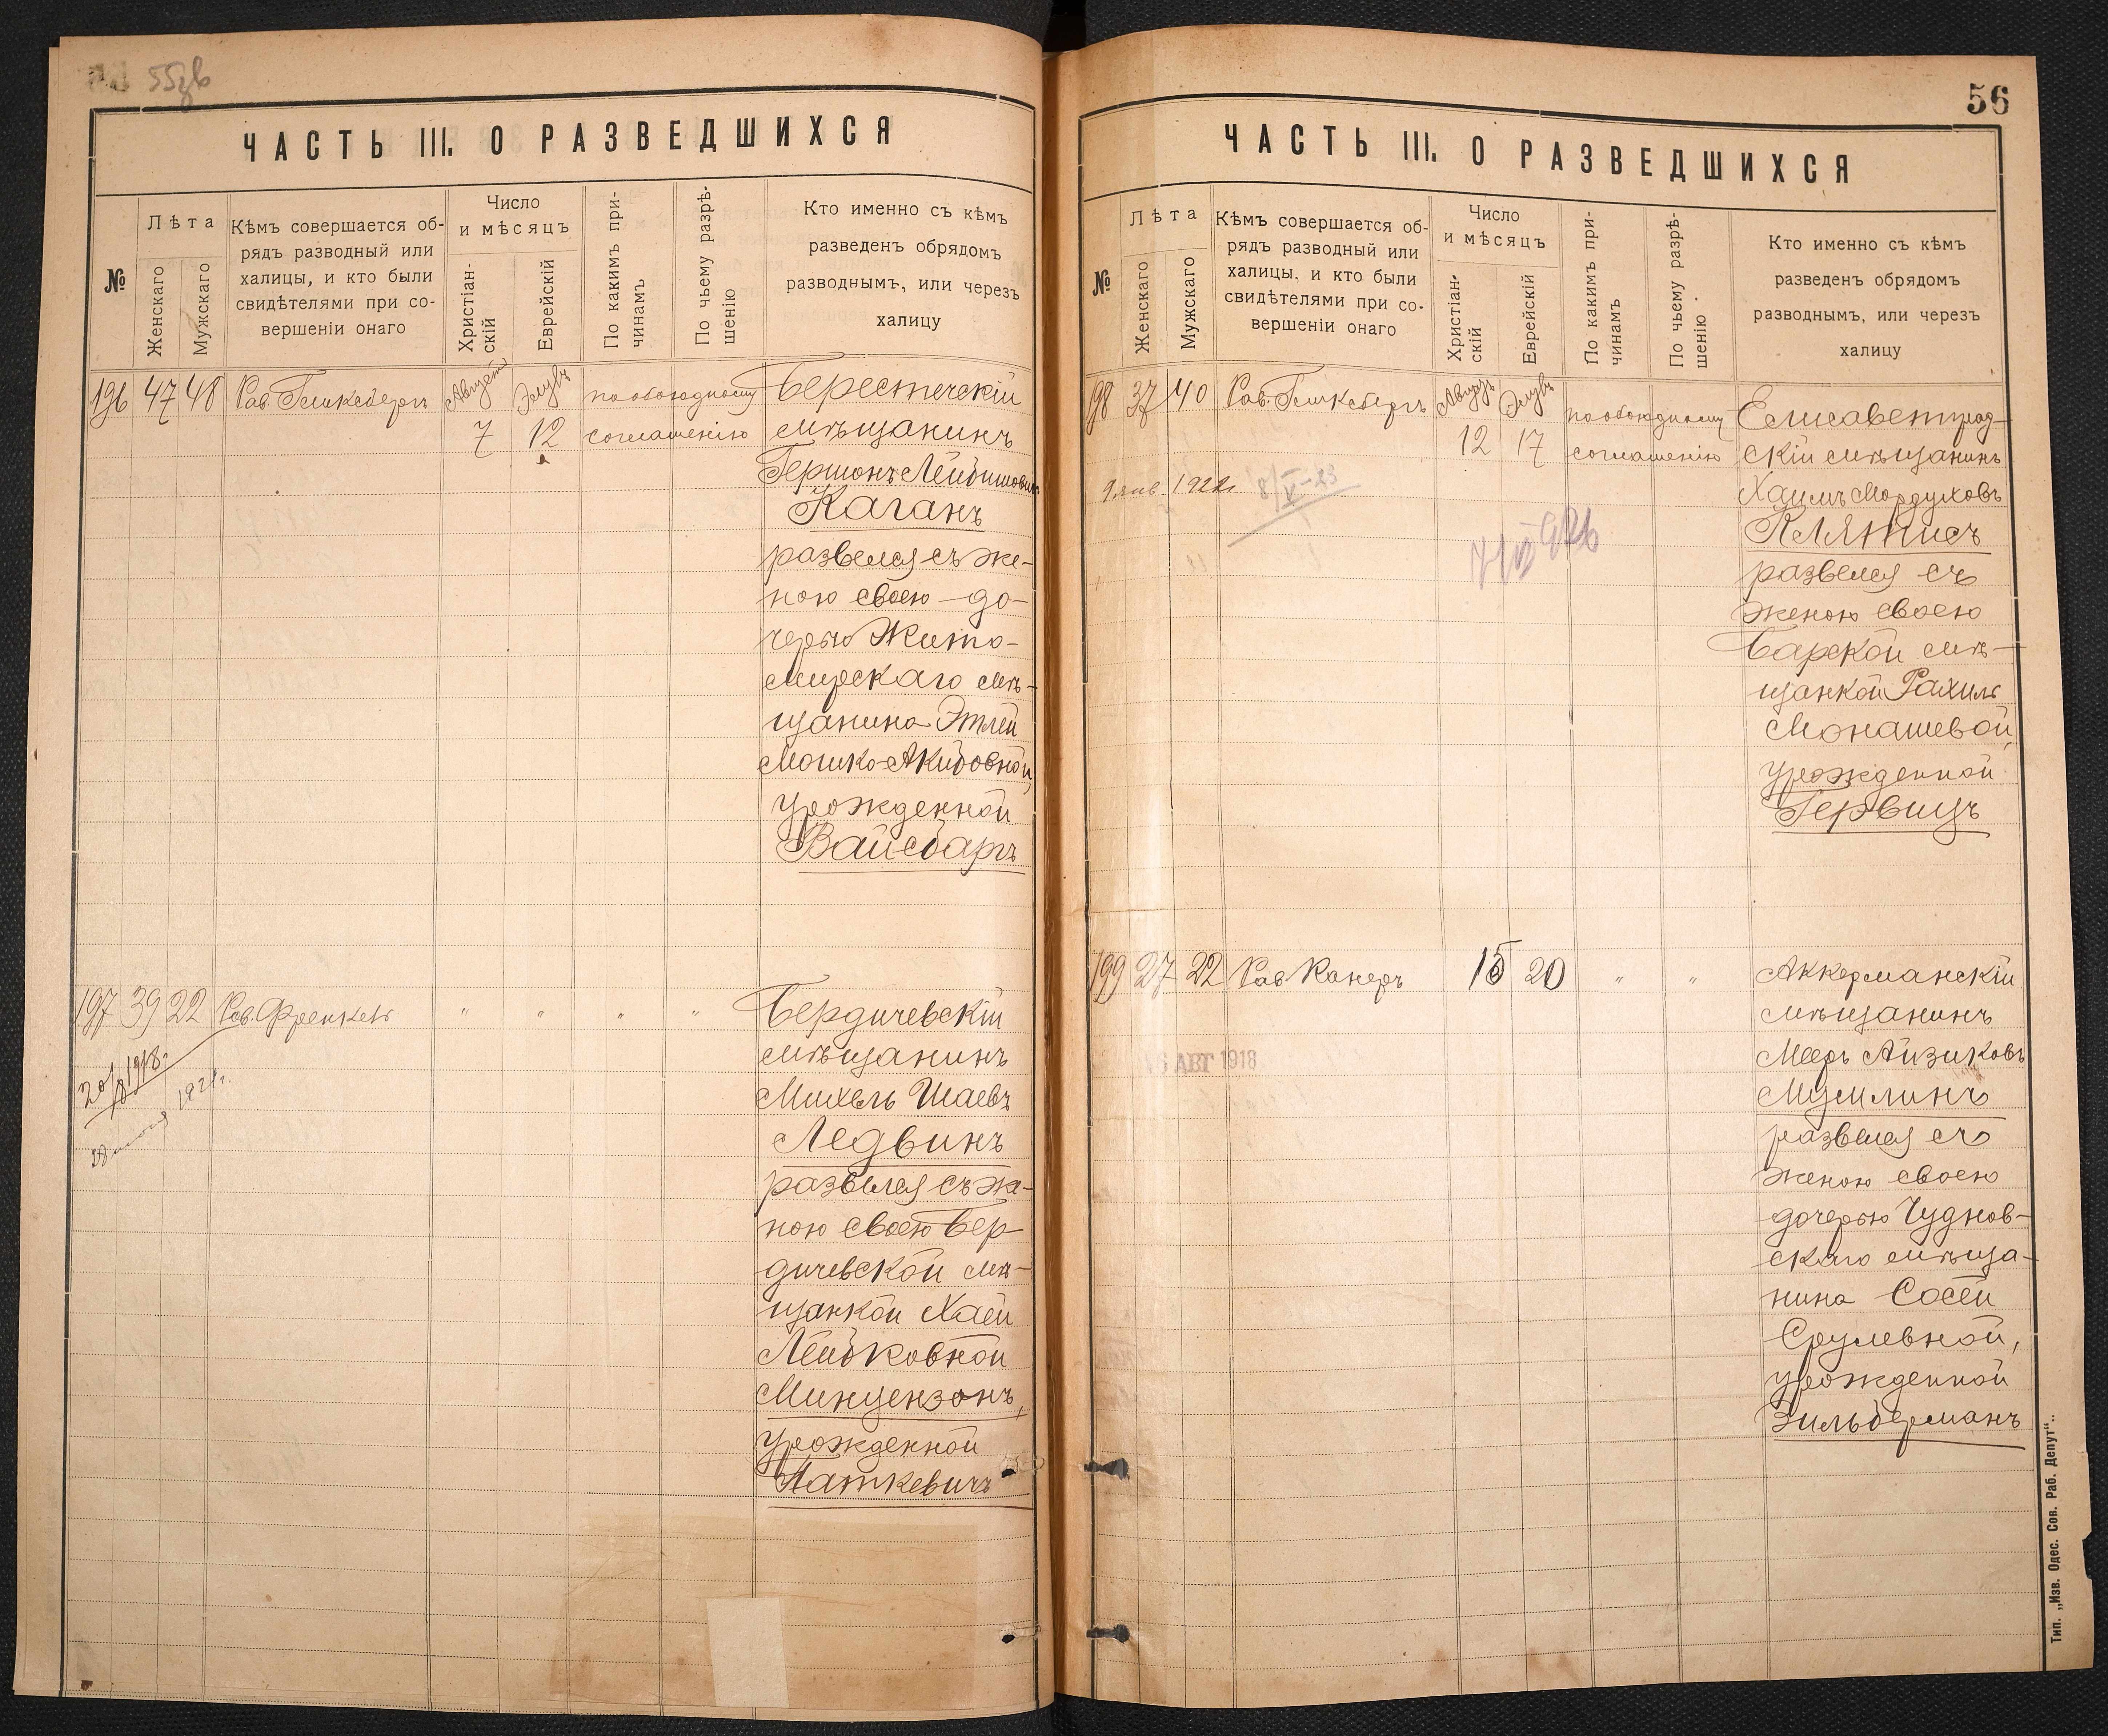 55зв
ЧАСТЬ III. О РАЗВЕДШИХСЯ
№
Лѣта
Женскаго
Мужскаго
Кѣмъ совершается об-
рядъ разводный или
халицы, и кто были
свидѣтелями при со-
вершеніи онаго
Число
и мѣсяцъ
Христіан-
скій
Еврейскій
По какимъ при-
чинамъ
По чьему разрѣ-
шенію
Кто именно съ кѣмъ
разведенъ обрядомъ
разводнымъ, или черезъ
халицу
196 47 48 Рав. Гликсбергъ Августъ Элулъ по обоюдному Берестечскій
7 12 соглашенію мѣщанинъ
Гершонъ Лейбишовъ
Каганъ
развелся съ же-
ною своею до-
черью Жито-
мирскаго мѣ-
щанина Этлей
Мошко-Акивовной,
урожденной
Вайсбаргъ
197 39 22 Рав. Френкель " " " " Бердичевскій
мѣщанинъ
20/ 1918г.
Михель Шаевъ
1921г.
Ледвинъ
развелся съ же-
ною своею Бер-
дичевской мѣ-
щанкой Хаей
Лейбковной
Минцензонъ,
урожденной
Наткевичъ
56
ЧАСТЬ III. О РАЗВЕДШИХСЯ
№
Лѣта
Женскаго
Мужскаго
Кѣмъ совершается об-
рядъ разводный или
халицы, и кто были
свидѣтелями при со-
вершеніи онаго
Число
и мѣсяцъ
Христіан-
скій
Еврейскій
По какимъ при-
чинамъ
По чьему разрѣ-
шенію
Кто именно съ кѣмъ
разведенъ обрядомъ
разводнымъ, или черезъ
халицу
198 37 40 Рав. Гликсбергъ Августъ Элулъ по обоюдному Елисаветград-
12 17 соглашенію скій мѣщанинъ
9 янв. 1922г 8/V-23
Хаимъ Мордуховъ
Клятисъ
развелся съ
женою своею
Барской мѣ-
щанкой Рахиль
Монашевой,
урожденной
Гервицъ
199 27 22 Рав. Канеръ 15 20 " " Аккерманскій
мѣщанинъ
6 АВГ 1918
Мееръ Айзиковъ
Мумлинъ
развелся съ
женою своею
дочерью Чуднов-
скаго мѣща-
нина Сосей
Срулевной,
урожденной
Зильберманъ
Тип. „Изв. Одес. Сов. Раб. Депут“.